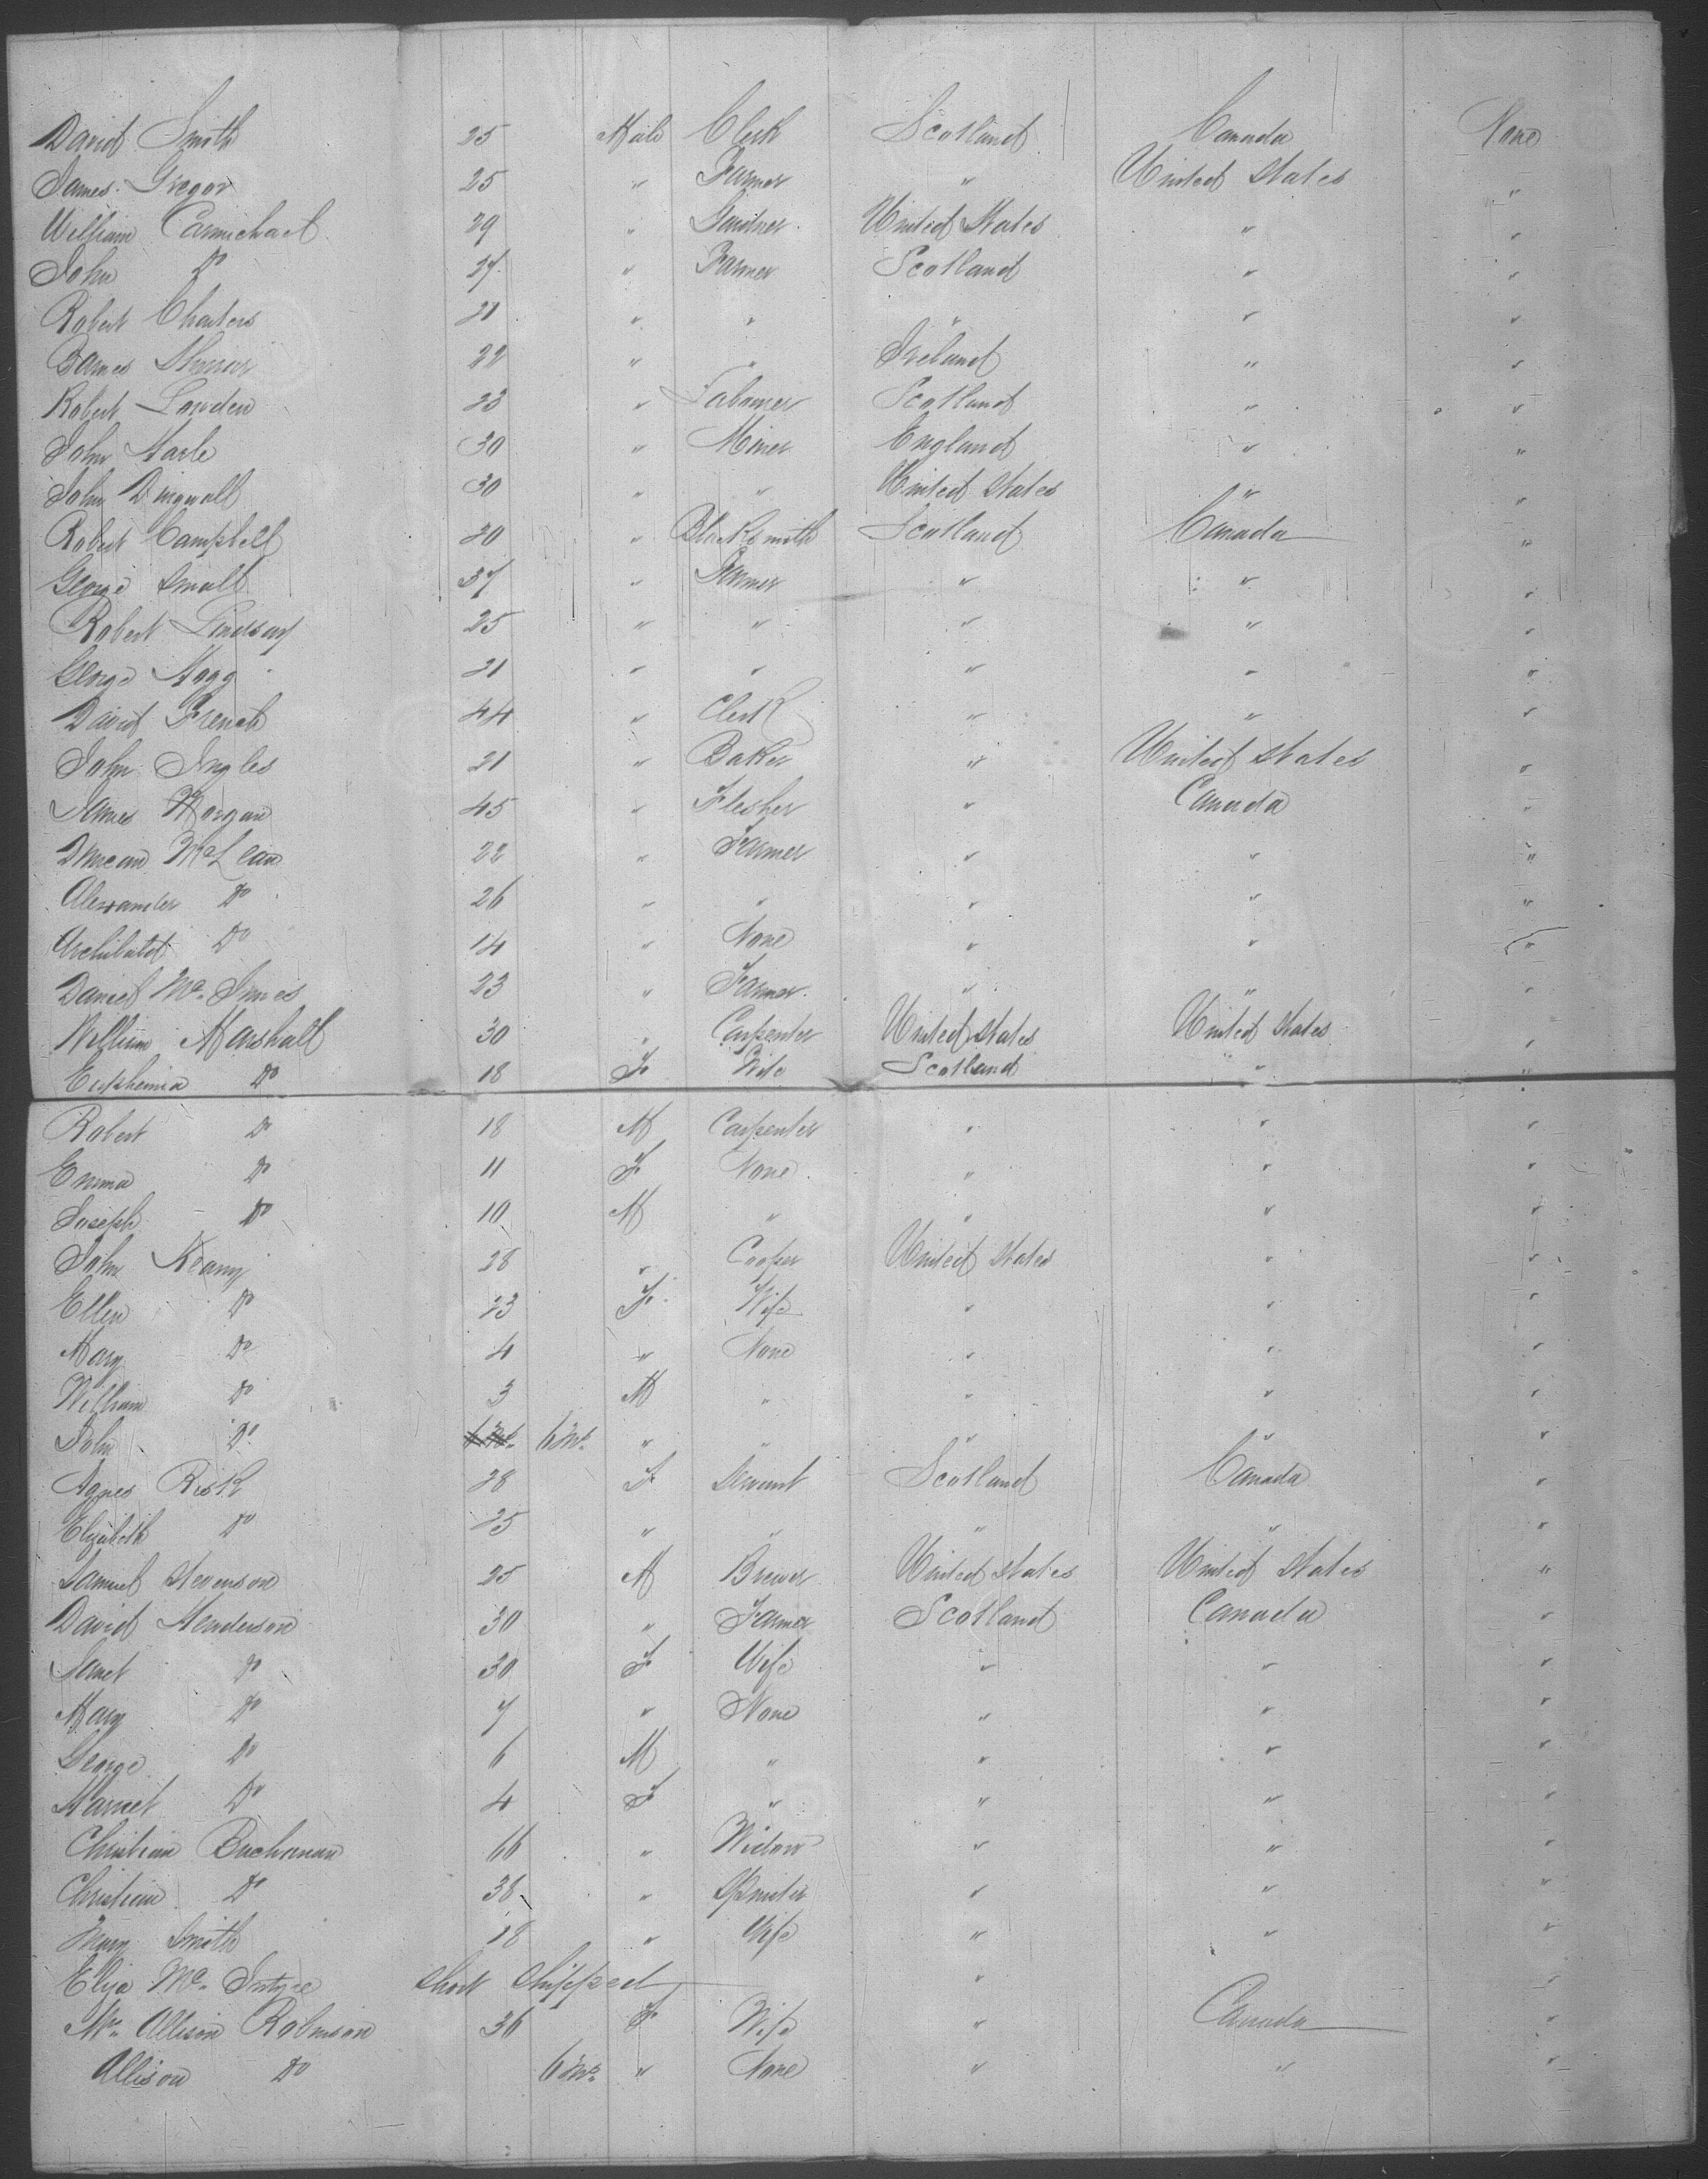 David Smith 25 Male Clerk Scotland Canada None
James Gregor 25 " Farmer " United States "
William Carmichael 29 " Gardner United States " "
John Do 27 " Farmer Scotland " "
Robert Charters 21 " " " " "
James 22 " " Ireland " "
Robert Lowden 23 " Labourer Scotland " "
John 30 " Miner England " "
John Dingwall 30 " " United States " "
Robert Campbell 20 " Blacksmith Scotland Canada "
George Small 37 " Farmer " " "
Robert Lindsay 25 " " " " "
George Hogg 21 " " " " "
David French 44 " Clerk " " "
John Ingles 21 " Baker " United States "
James Morgan 45 " Flesher " Canada "
Duncan McLean 22 " Farmer " " "
Alexander Do 26 " " " " "
Archibald Do 14 " None " " "
Daniel Mc. Innes 23 " Farmer " " "
William Marshall 30 " Carpenter United States United States "
Euphemia Do 18 F Wife Scotland " "
Robert Do 18 M Carpenter " " "
Emma Do 11 F None " " "
Joseph Do 10 M " " " "
John Keany 28 " Cooper United States " "
Ellen Do 23 F Wife " " "
Mary Do 4 " None " " "
William Do 3 M " " " "
John Do 6 Ms. " " " " "
Agnes Risk 28 F Servant Scotland Canada "
Elizabeth Do 25 " " " " "
Samuel Stevenson 25 M Brewer United States United States "
David Henderson 30 " Farmer Scotland Canada "
Janet Do 30 F Wife " " "
Mary Do 7 " None " " "
George Do 6 M " " " "
Harriet Do 4 F " " " "
Christian Buchanan 66 " Widow " " "
Christian Do 38 " Spinster " " "
Mary Smith 18 " Wife " " "
Eliza Mc. Intyre Short Shipped " "
Mrs. Allison Robinson 36 F Wife " Canada "
Allison Do 6 Ms. " None " " "